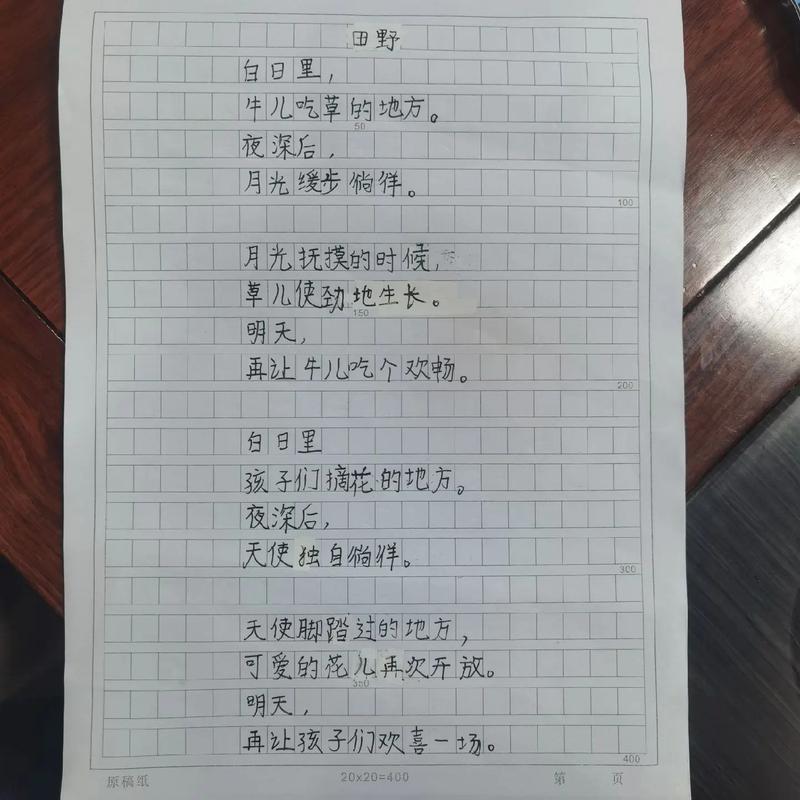 田野
白日里，
牛儿吃草的地方。
50
夜深后，
月光缓步徜徉。
100
月光抚摸的时候，
草儿使劲地生长。
150
明天，
再让牛儿吃个欢畅。
200
白日里
孩子们摘花的地方。
夜深后，
天使独自徜徉。
300
天使脚踏过的地方，
可爱的花儿再次开放。
350
明天，
再让孩子们欢喜一场。
400
原稿纸 20×20=400 第 页